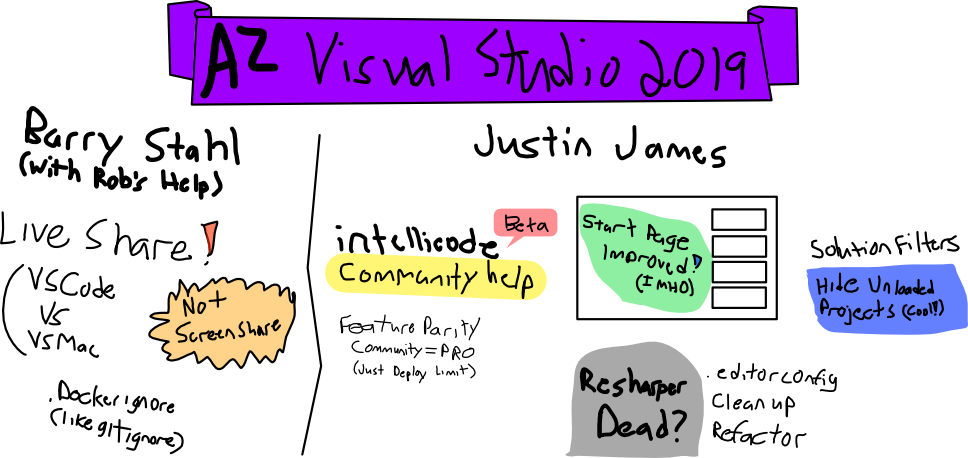 AZ Visual Studio 2019
Barry Stahl
(with Rob's Help)
Live Share!
(VSCode
VS
VSMac
Not
ScreenShare
.Dockerignore
(like gitignore)
Justin James
intellicode
Beta
Community help
Feature Parity
Community = PRO
(Just Deploy Limit)
Start Page
Improved!
(IMHO)
Solution Filters
Hide Unloaded
Projects (cool!!)
Resharper
Dead?
.editorconfig
Clean up
Refactor